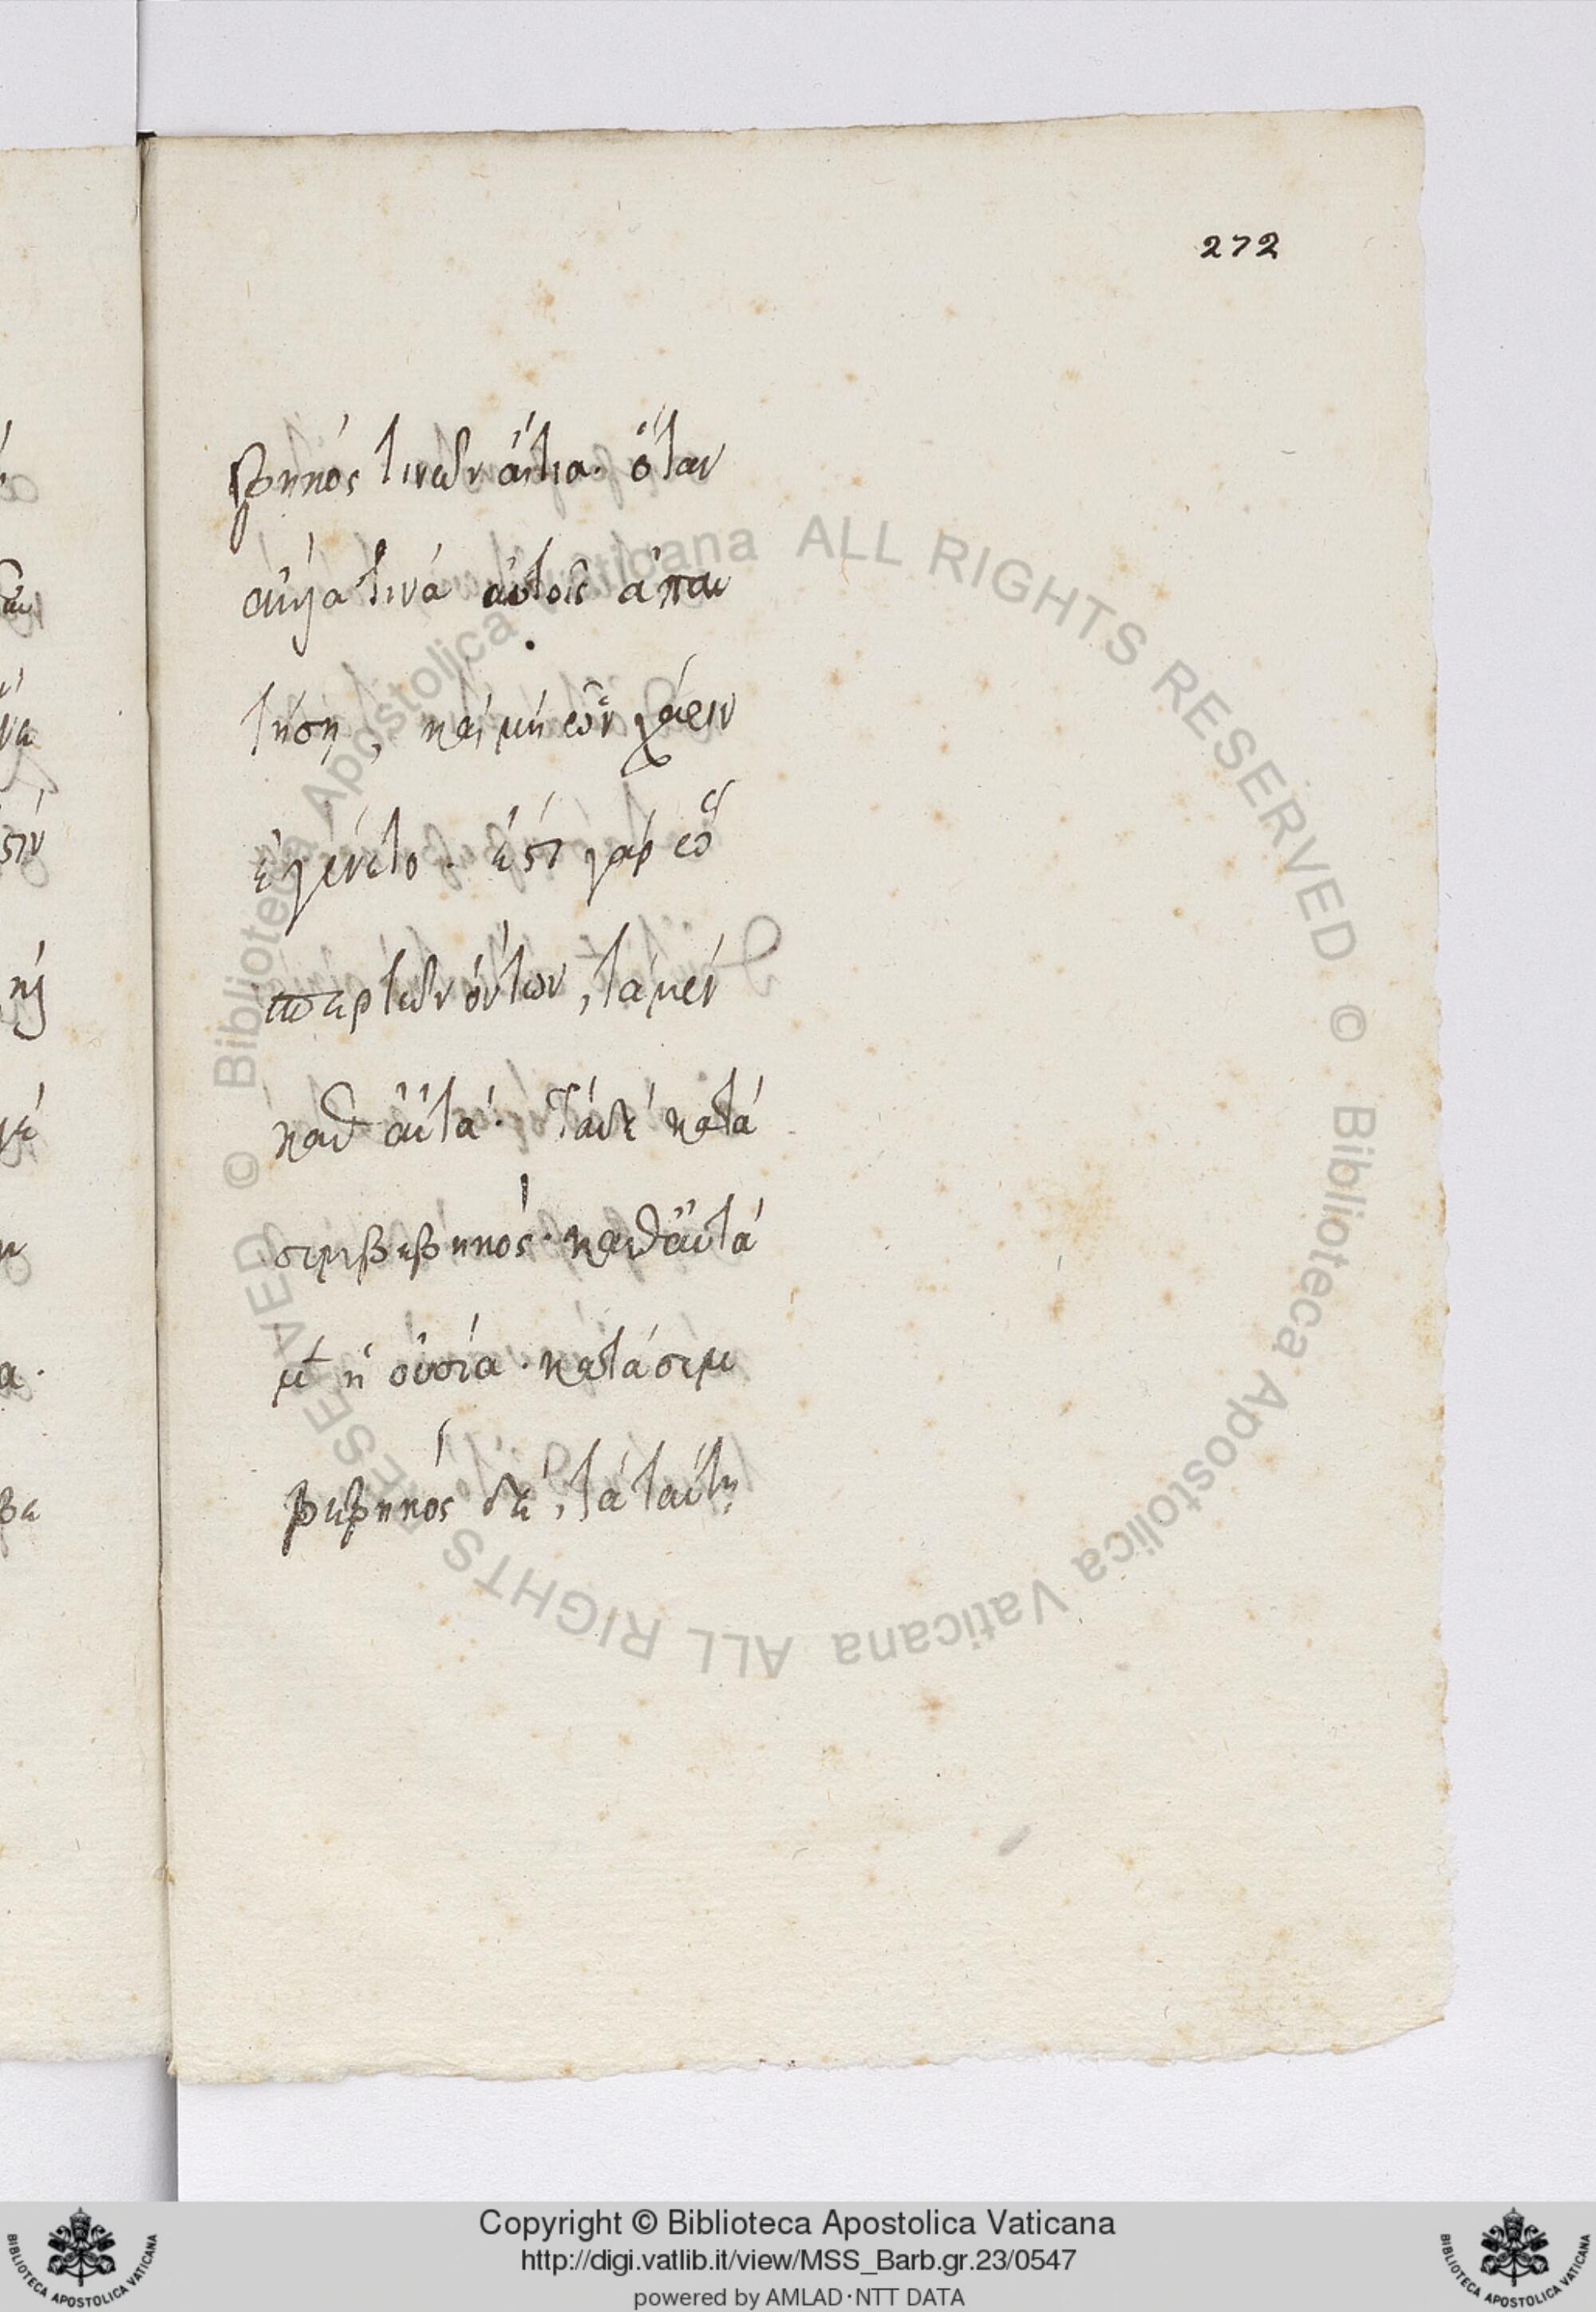 272
βηκός τινῶν αἴτια. ὅταν
αὐγα τινὰ αὐτοῖς ἀπαν
τήση, καὶ μὴ ὧν χάριν
ἐγένετο. ἔστ γὰρ ὥ
σπερ τῶν ὄντων, τὰ μὲν
καθ αὑτά. τὰ δὲ κατὰ
συμβεβηκός. καθ αὑτὰ
μὲν ἡ οὐσία. κατὰ συμ
βεβηκός δὲ, τὰ ταύτῃ
Copyright © Biblioteca Apostolica Vaticana
http://digi.vatlib.it/view/MSS_Barb.gr.23/0547
powered by AMLAD·NTT DATA
© Biblioteca Apostolica Vaticana ALL RIGHTS RESERVED © Biblioteca Apostolica Vaticana ALL RIGHTS RESERVED
BIBLIOTECA APOSTOLICA VATICANA
BIBLIOTECA APOSTOLICA VATICANA